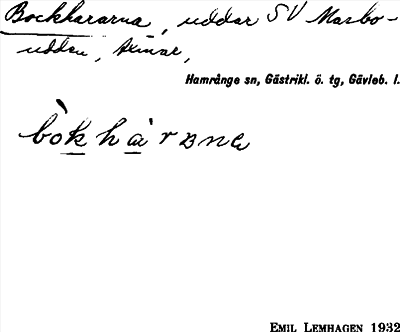 Bockhararna, uddar SV Masbo-
udden, Axmar,
Hamrånge sn, Gästrikl. ö. tg, Gävleb. l.
bòkhàrɐna
EMIL LEMHAGEN 1932